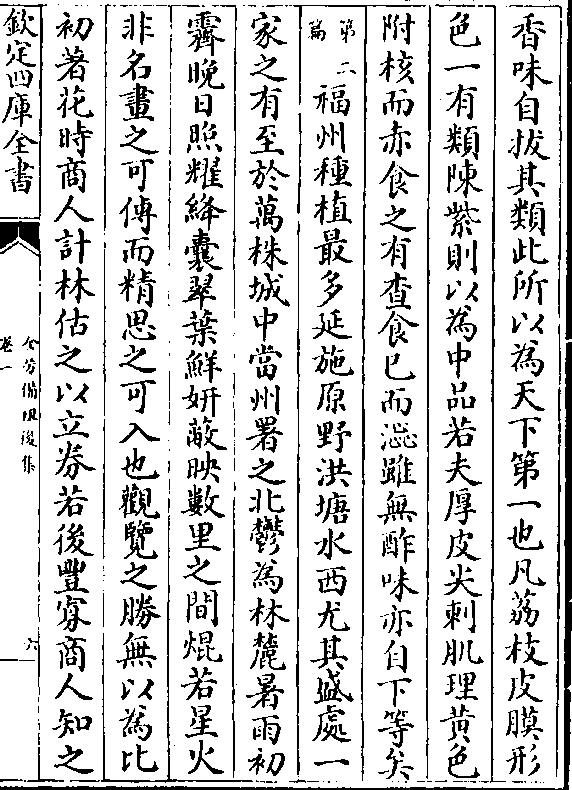 香味自拔其類此所以為天下第一也凡荔枝皮膜形
色一有類陳紫則以為中品若夫厚皮尖刺肌理黄色
附核而赤食之有查食已而澁雖無酢味亦自下等矣
第二篇福州種植最多延施原野洪塘水西尤其盛處一
家之有至於萬株城中當州署之北鬱為林麓暑雨初
霽晩日照耀絳囊翠葉鮮妍蔽映數里之間焜若星火
非名畫之可傳而精思之可入也觀覽之勝無以為比
初著花時商人計林估之以立券若後豐寡商人知之
欽定四庫全書
全芳備祖後集
卷一
六